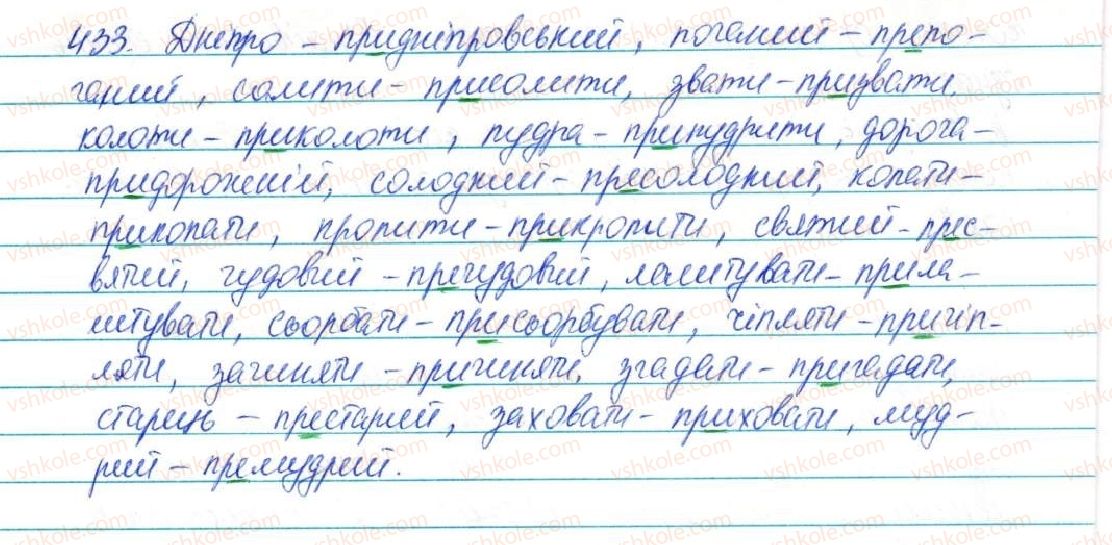 433. Дніпро - придніпровський, поганий - препо-
ганий, солити - присолити, звати - призвати,
колоти - приколоти, пудра - припудрити, дорога -
придорожній, солодкий - пресолодкий, копати -
прикопати, кропити - прикропити, святий - прес-
вятий, чудовий - пречудовий, лаштувати - прила-
штувати, сьорбати - присьорбувати, чіпляти - причіп-
ляти, зачиняти - причиняти, згадати - пригадати,
старець - престарий, заховати - приховати, муд-
рий - премудрий.